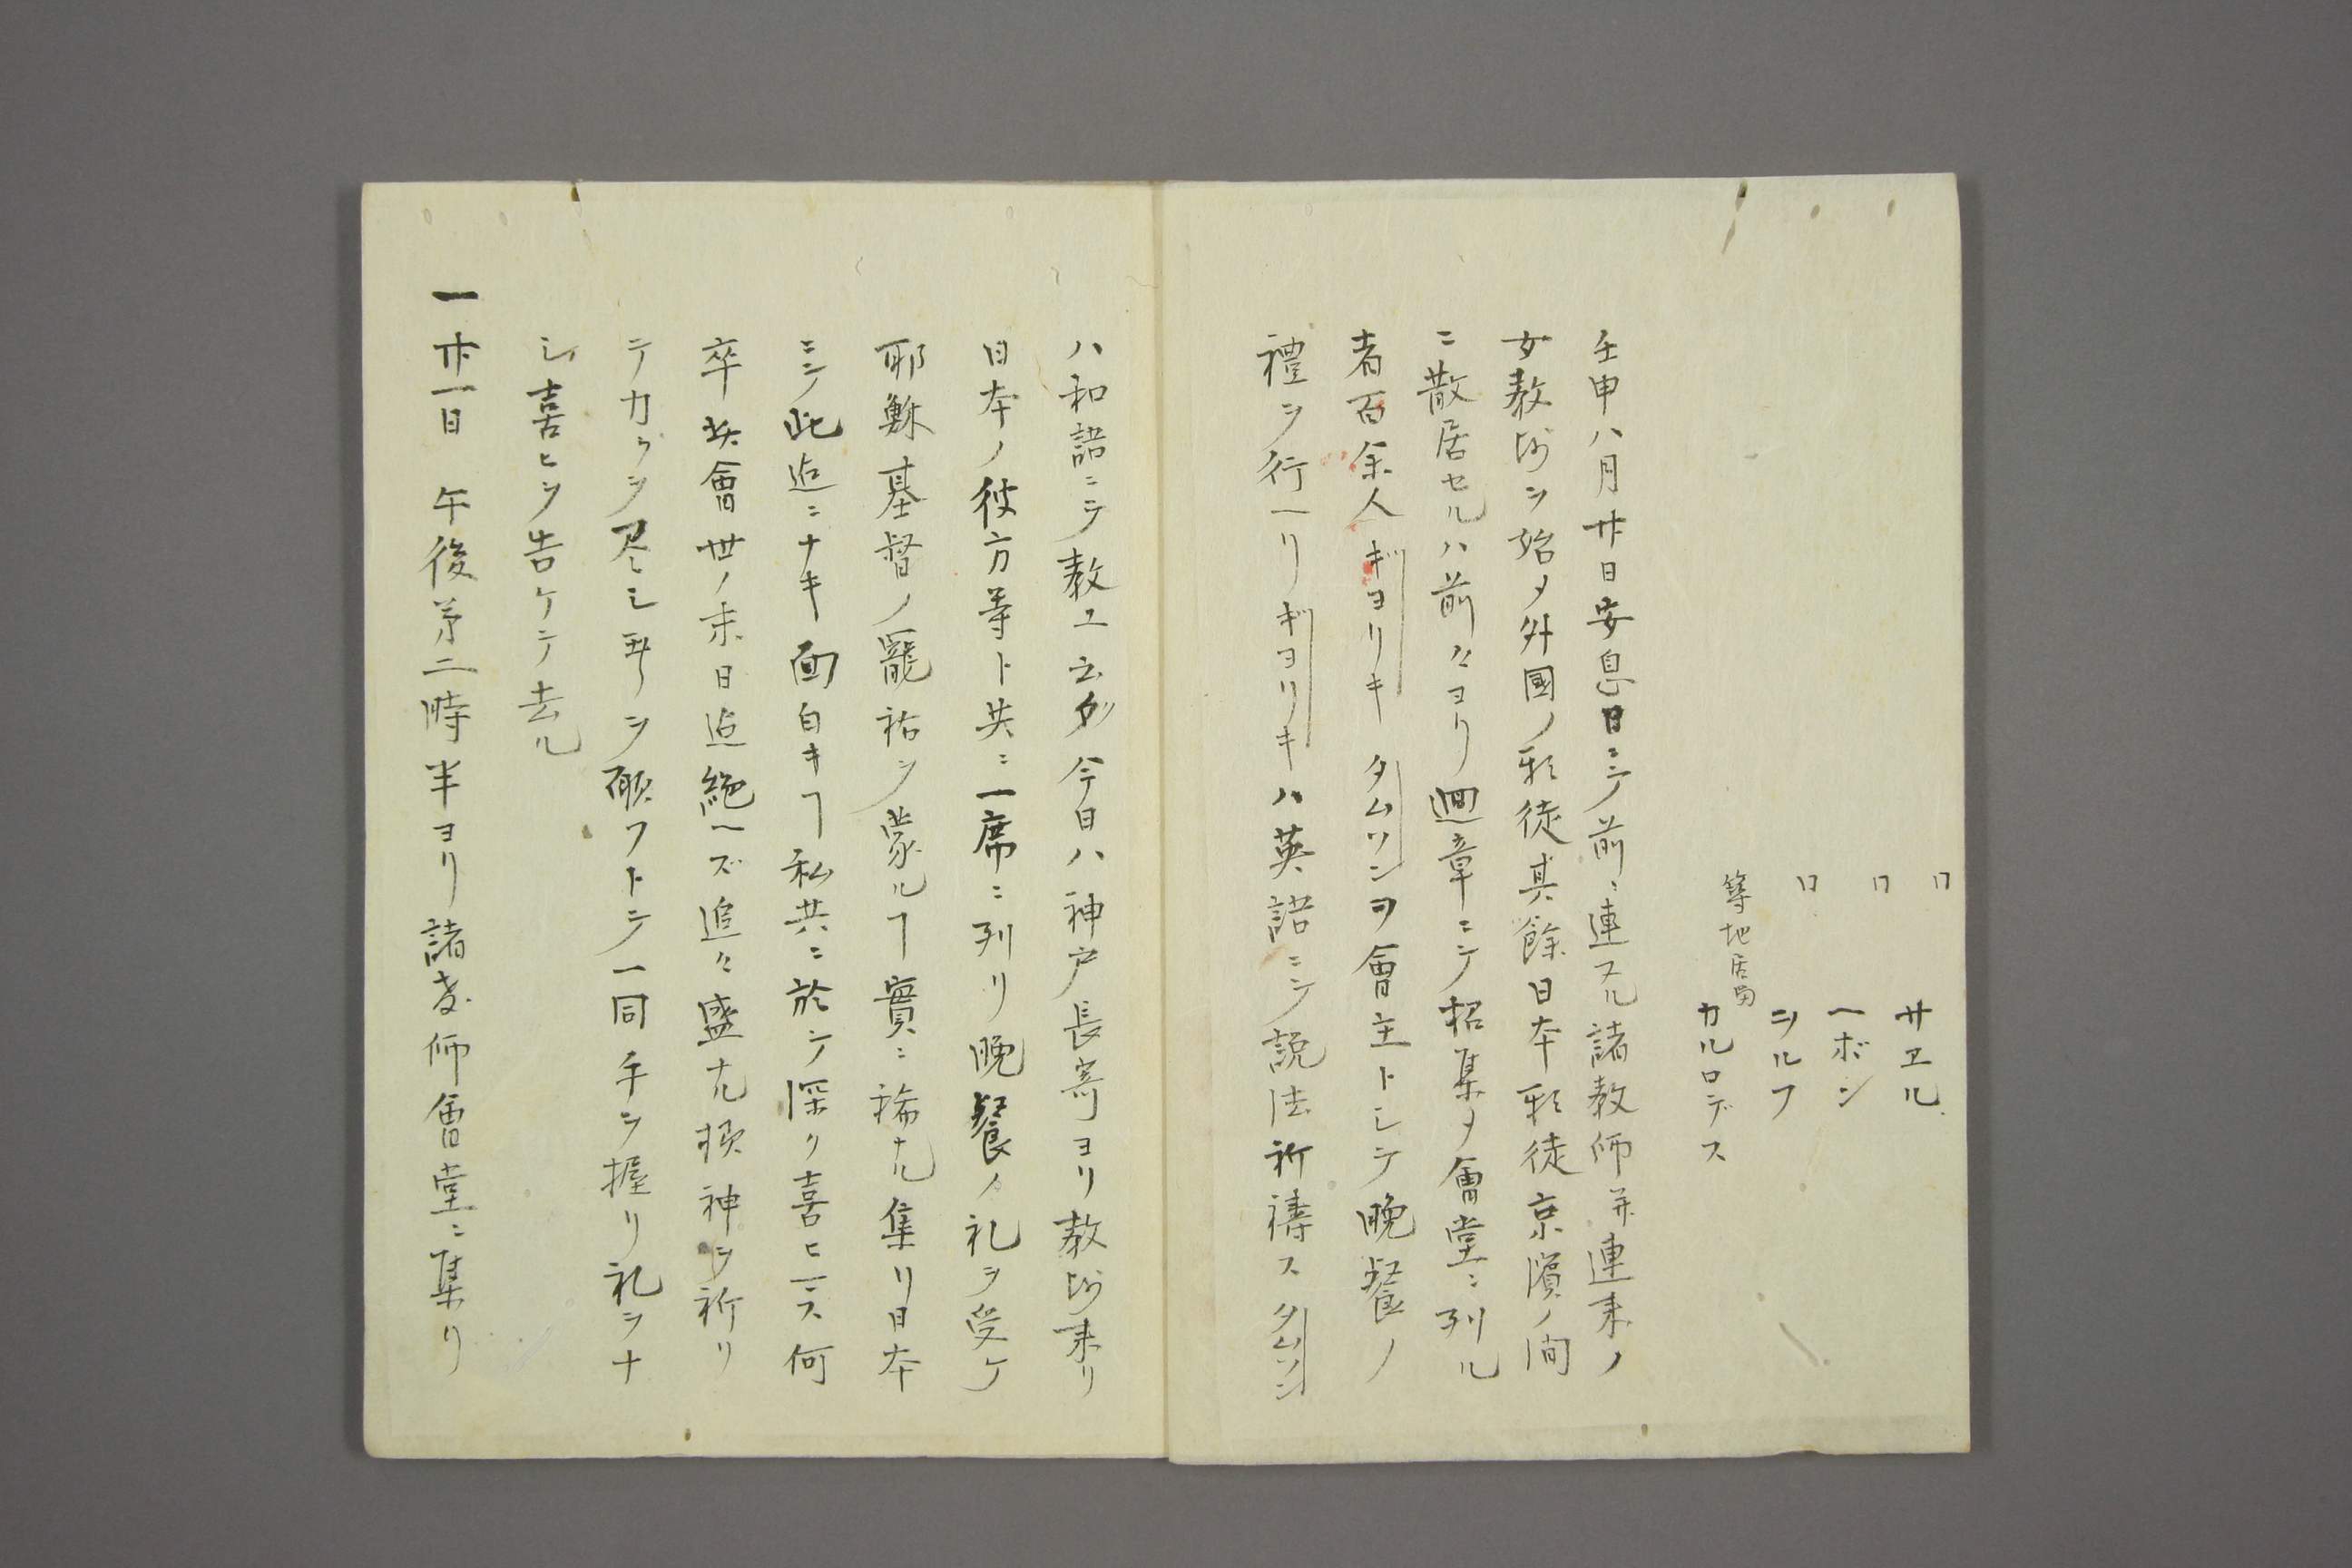 〃 サヱル
〃 ヘボン
〃 ニルフ
築地居留 カルロデス
壬申八月廿日安息日ニシテ前ニ連ヌル諸教師并連来ノ
女教師ヲ始メ外國ノ邪徒其餘日本邪徒京濱ノ間
ニ散居セルハ前々ヨリ廻章ニテ招集メ會堂ニ列ル
者百余人ギヨリキ タムソンヲ會主トシテ晩餐ノ
禮ヲ行ヘリギヨリキハ英語ニテ説法祈祷スタムソン
ハ和語ニテ教ヱ云ク今日ハ神戸長寄ヨリ教師来リ
日本ノ彼方等ト共ニ一席ニ列リ晩餐ノ礼ヲ受ケ
耶穌基督ノ寵祐ヲ蒙ルヿ實ニ稀ナル集リ日本
ニテ此迠ニナキ面白キヿ私共ニ於テ深ク喜ヒマス何
卒此會世ノ末日迠絶ヘズ追々盛ナル様神ヲ祈リ
テカラヲ尽シ玉ヘヲ願フトテ一同手ヲ握リ礼ヲナ
シ喜ヒヲ告ケテ去ル
一廿一日 午後第二時半ヨリ諸教師會堂ニ集リ